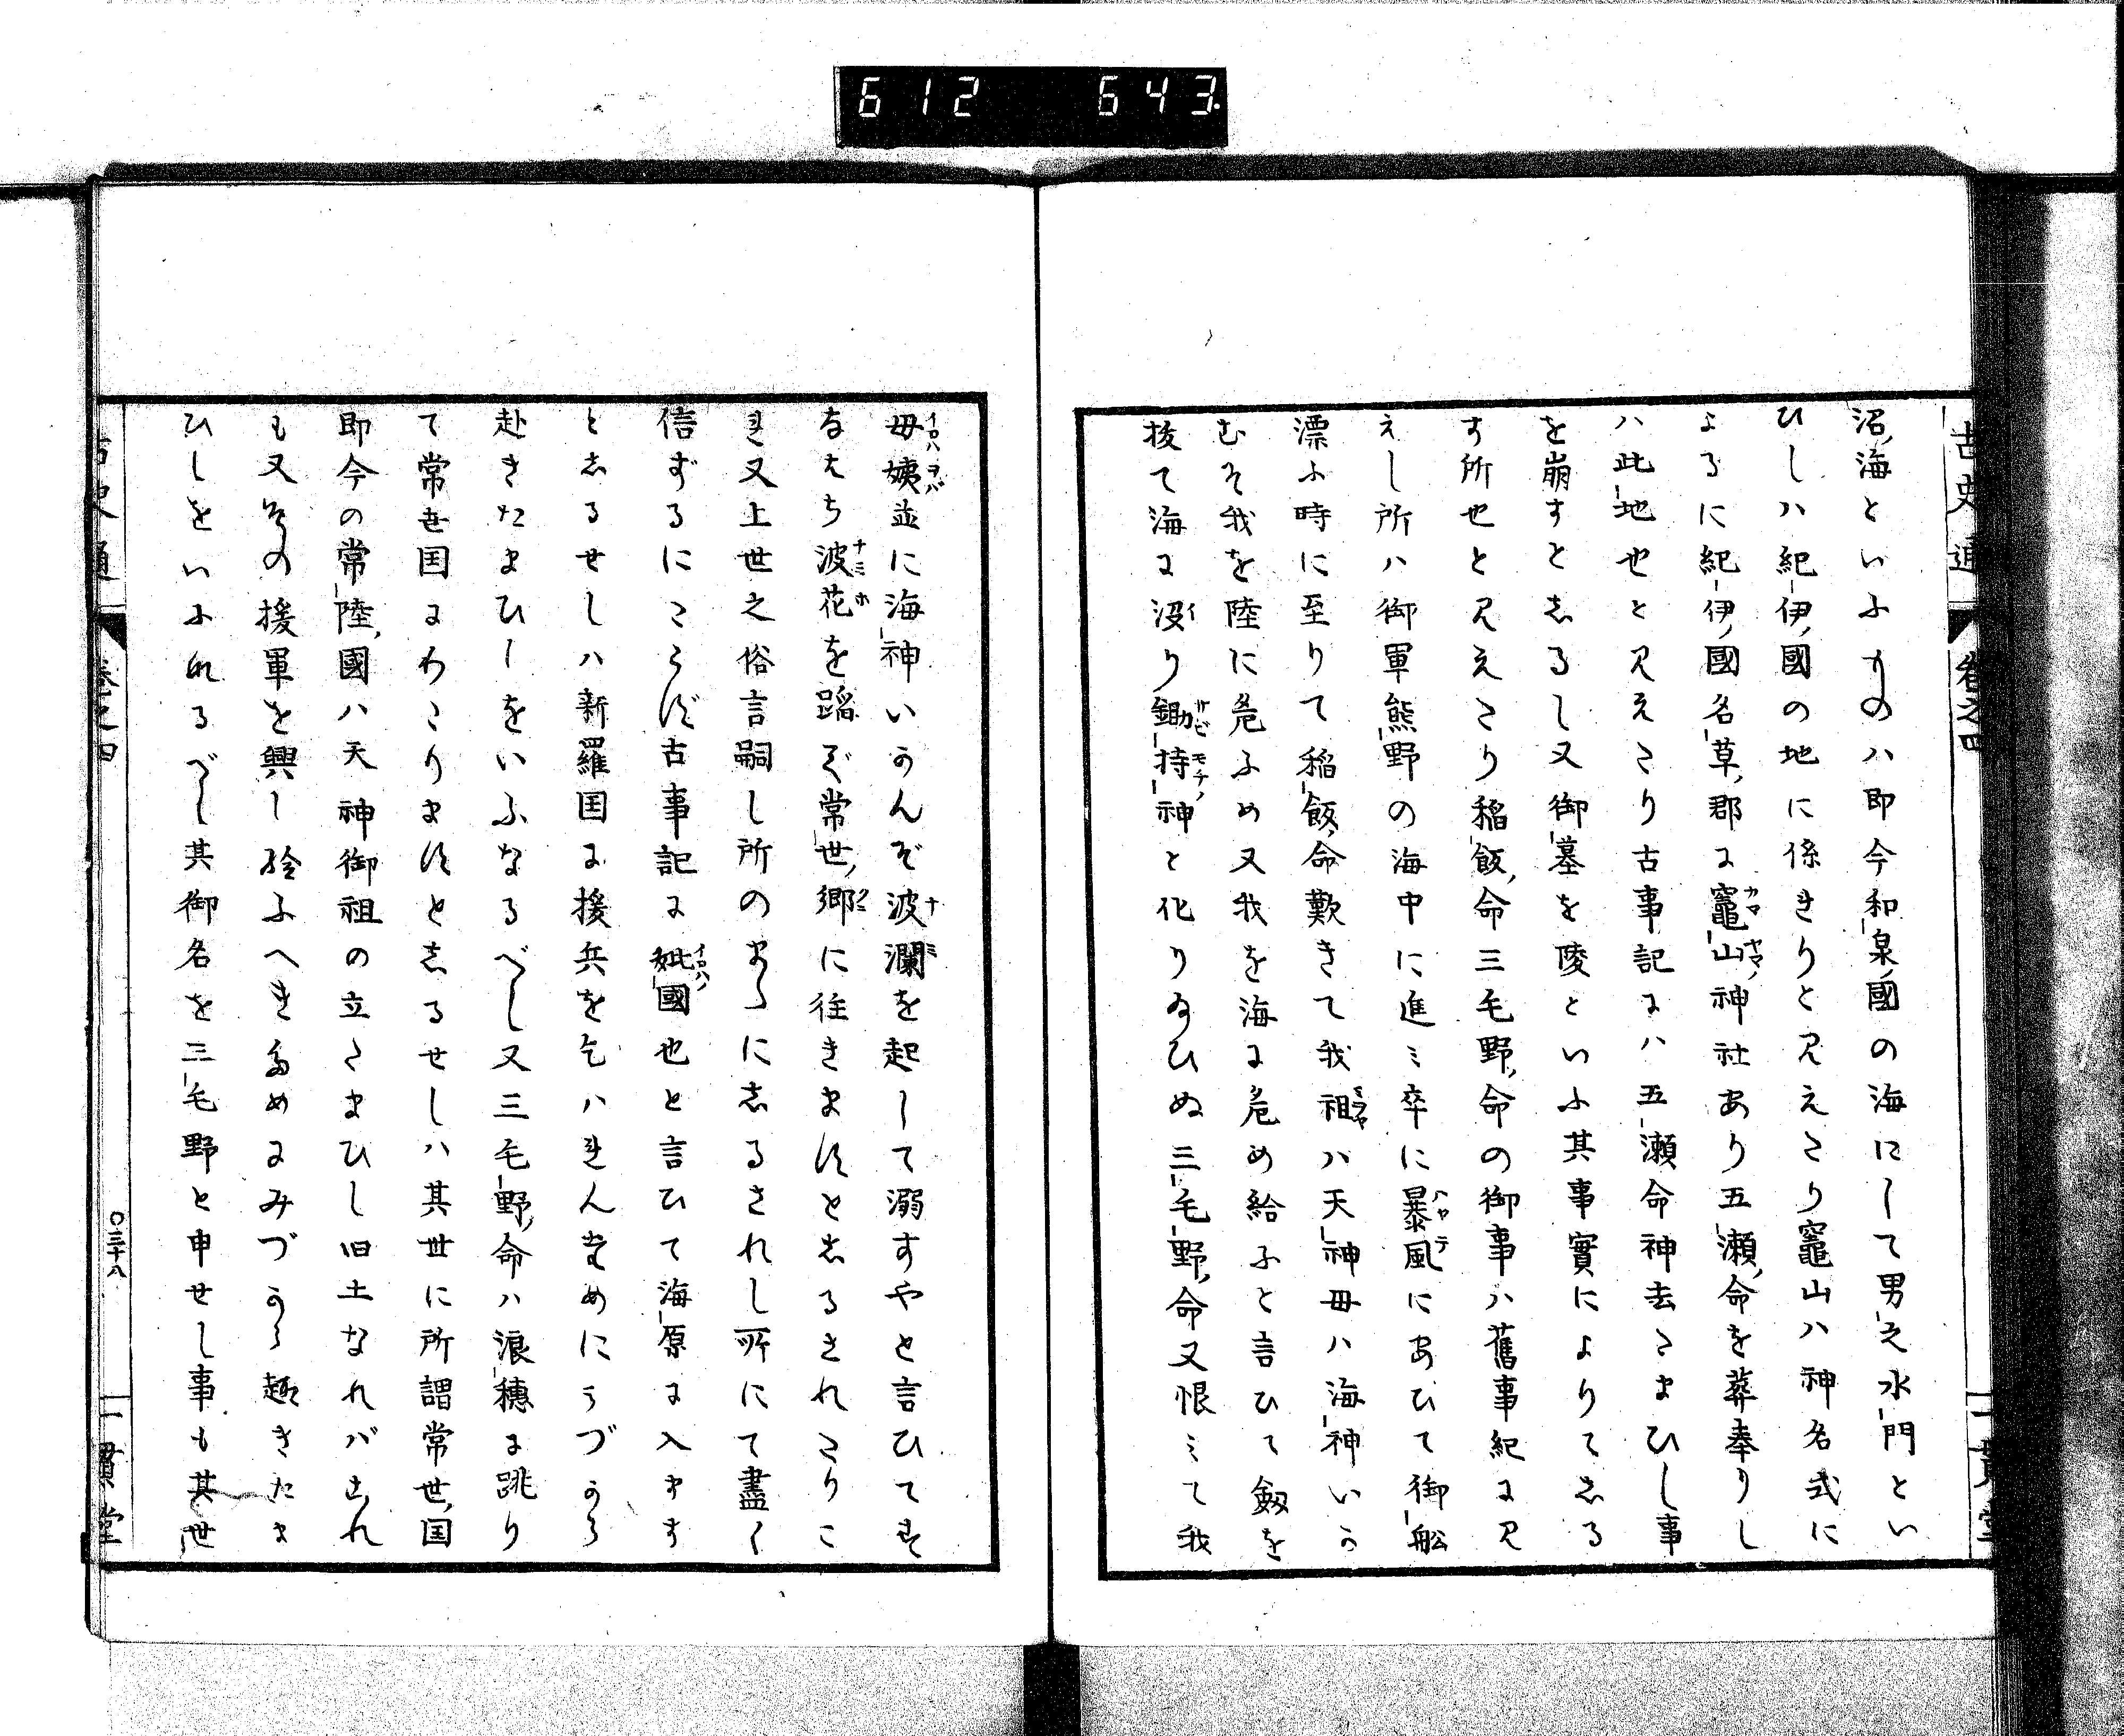 612 643
古史通 卷之四 一貫堂
沼海といふものハ即今和泉國の海にして男之水門とい
ひしハ紀伊國の地に係きりと見えたり竈山ハ神名式に
よるに紀伊國名草郡に竈山神社あり五瀬命を葬奉りし
ハ此地也と見えたり古事記にハ五瀬命神去たまひし事
を崩すとしるし又御墓を陵といふ其事實によりてしる
す所也と見えたり稲飯命三毛野命の御事ハ舊事紀に見
えし所ハ御軍熊野の海中に進ミ卒に暴風にあひて御船
漂ふ時に至りて稲飯命歎きて我祖ハ天神母ハ海神いか
むそ我を陸に危ふめ又我を海に危め給ふと言ひて劔を
抜て海に没り鋤持神と化り給ひぬ三毛野命又恨ミて我
母姨並に海神いかんぞ波瀾を起して溺すやと言ひてす
なはち波花を蹈ぞ常世郷に往きますとしるされたりこ
れ又上世之俗言嗣し所のまゝにしるされし所にて盡く
信ずるにたらず古事記に妣國也と言ひて海原に入ます
としるせしハ新羅国に援兵を乞ハれんためにミづから
赴きたまひしをいふなるべし又三毛野命ハ浪穗に跳り
て常世国にわたりますとしるせしハ其世に所謂常世国
即今の常陸國ハ天神御祖の立たまひし旧土なれバこれ
も又その援軍を興し給ふへきためにみづから趣きたま
ひしをいふなるべし其御名を三毛野と申せし事も其世
古史通 卷之四 〇三十八 一貫堂